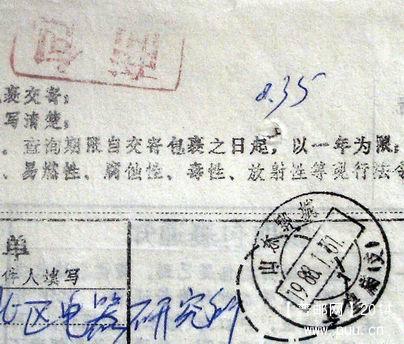 商包
0.35
裹交寄;
写清楚;
、查询期限自交寄包裹之日起,以一年为限;
、易燃性、腐蚀性、毒性、放射性等现行法令
山东
1988.1.31.
(支)
单
件人填写
区电器研究所